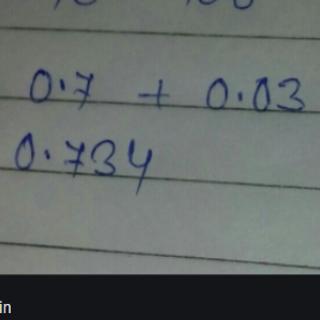 0.7 + 0.03
0.734
in